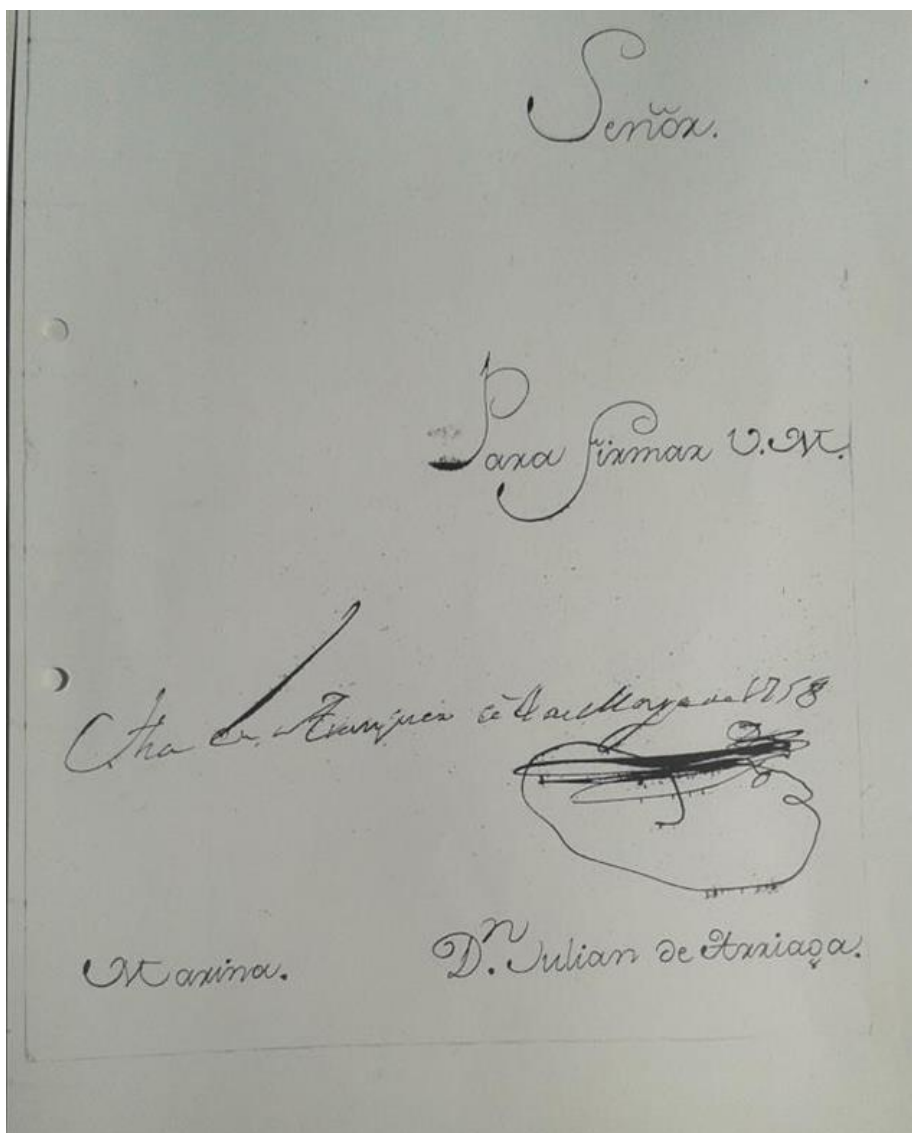 Señor.
Para firmar V.M.
fha en Aranjuez à 4 de Mayo de 1758
Marina.
D.n Julian de Arriaga.